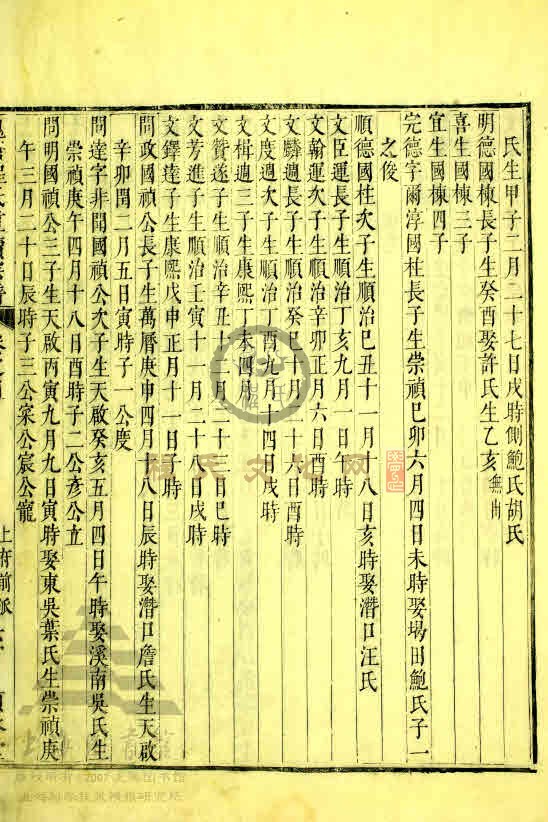 氏生甲子二月二十七日戌時側鮑氏胡氏
明德國棟長子生癸酉娶許氏生乙亥無出
喜生國棟三子
宜生國棟四子
完德字爾淳國柱長子生崇禎己卯六月四日未時娶堨田鮑氏子一
之俊
順德國柱次子生順治己丑十一月十八日亥時娶潛口汪氏
文臣運長子生順治丁亥九月一日午時
文翰運次子生順治辛卯正月六日酉時
文驎適長子生順治癸巳月二十六日酉時
文度適次子生順治丁酉月十四日戌時
文楫適三子生康熙丁未四月時
文贊遂子生順治辛丑十月二十三日巳時
文芳進子生順治壬寅十一月二十八日戌時
文鐸達子生康熙戊申正月十一日子時
問政國禎公長子生萬曆庚申四月十八日辰時娶潛口詹氏生天啟
辛卯閏二月五日寅時子一公度
問達字非聞國禎公次子生天啟癸亥五月四日午時娶溪南吳氏生
崇禎庚午四月十八日酉時子二公彥公立
問明國禎公三子生天啟丙寅九月九日寅時娶東吳葉氏生崇禎庚
午三月二十日辰時子三公寀公宸公寵
上府前派